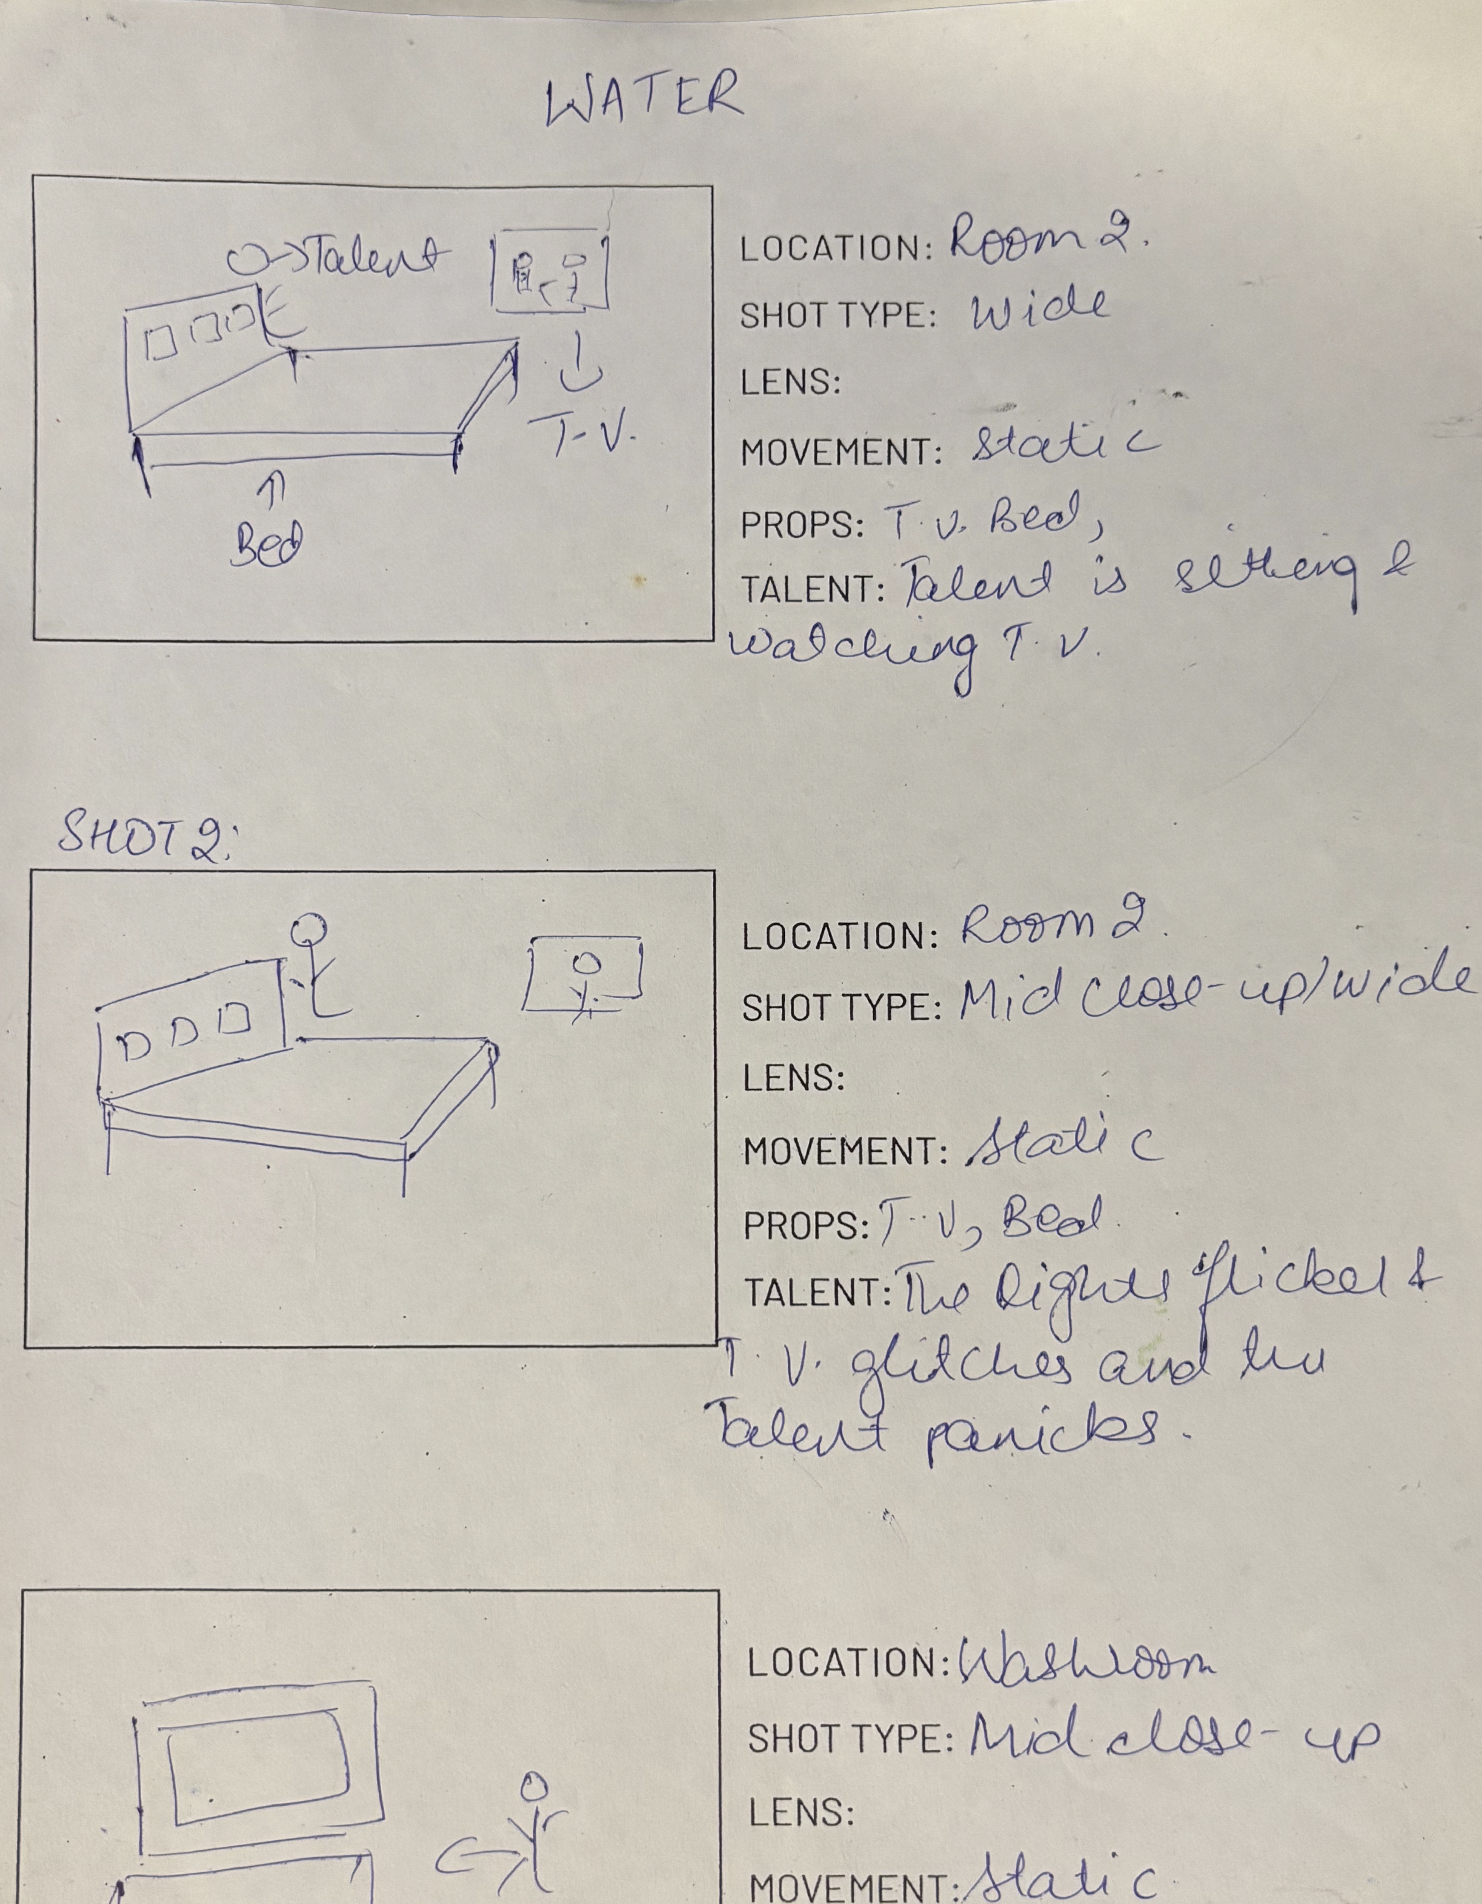 WATER
Talent
T.V.
Bed
LOCATION: Room 2.
SHOT TYPE: Wide
LENS:
MOVEMENT: Static
PROPS: T.V. Bed,
TALENT: Talent is sitting &
watching T.V.
SHOT 2:
LOCATION: Room 2.
SHOT TYPE: Mid close-up/wide
LENS:
MOVEMENT: Static
PROPS: T.V, Bed.
TALENT: The lights flicker &
T.V. glitches and the
Talent panicks.
LOCATION: Washroom
SHOT TYPE: Mid close-up
LENS:
MOVEMENT: Static